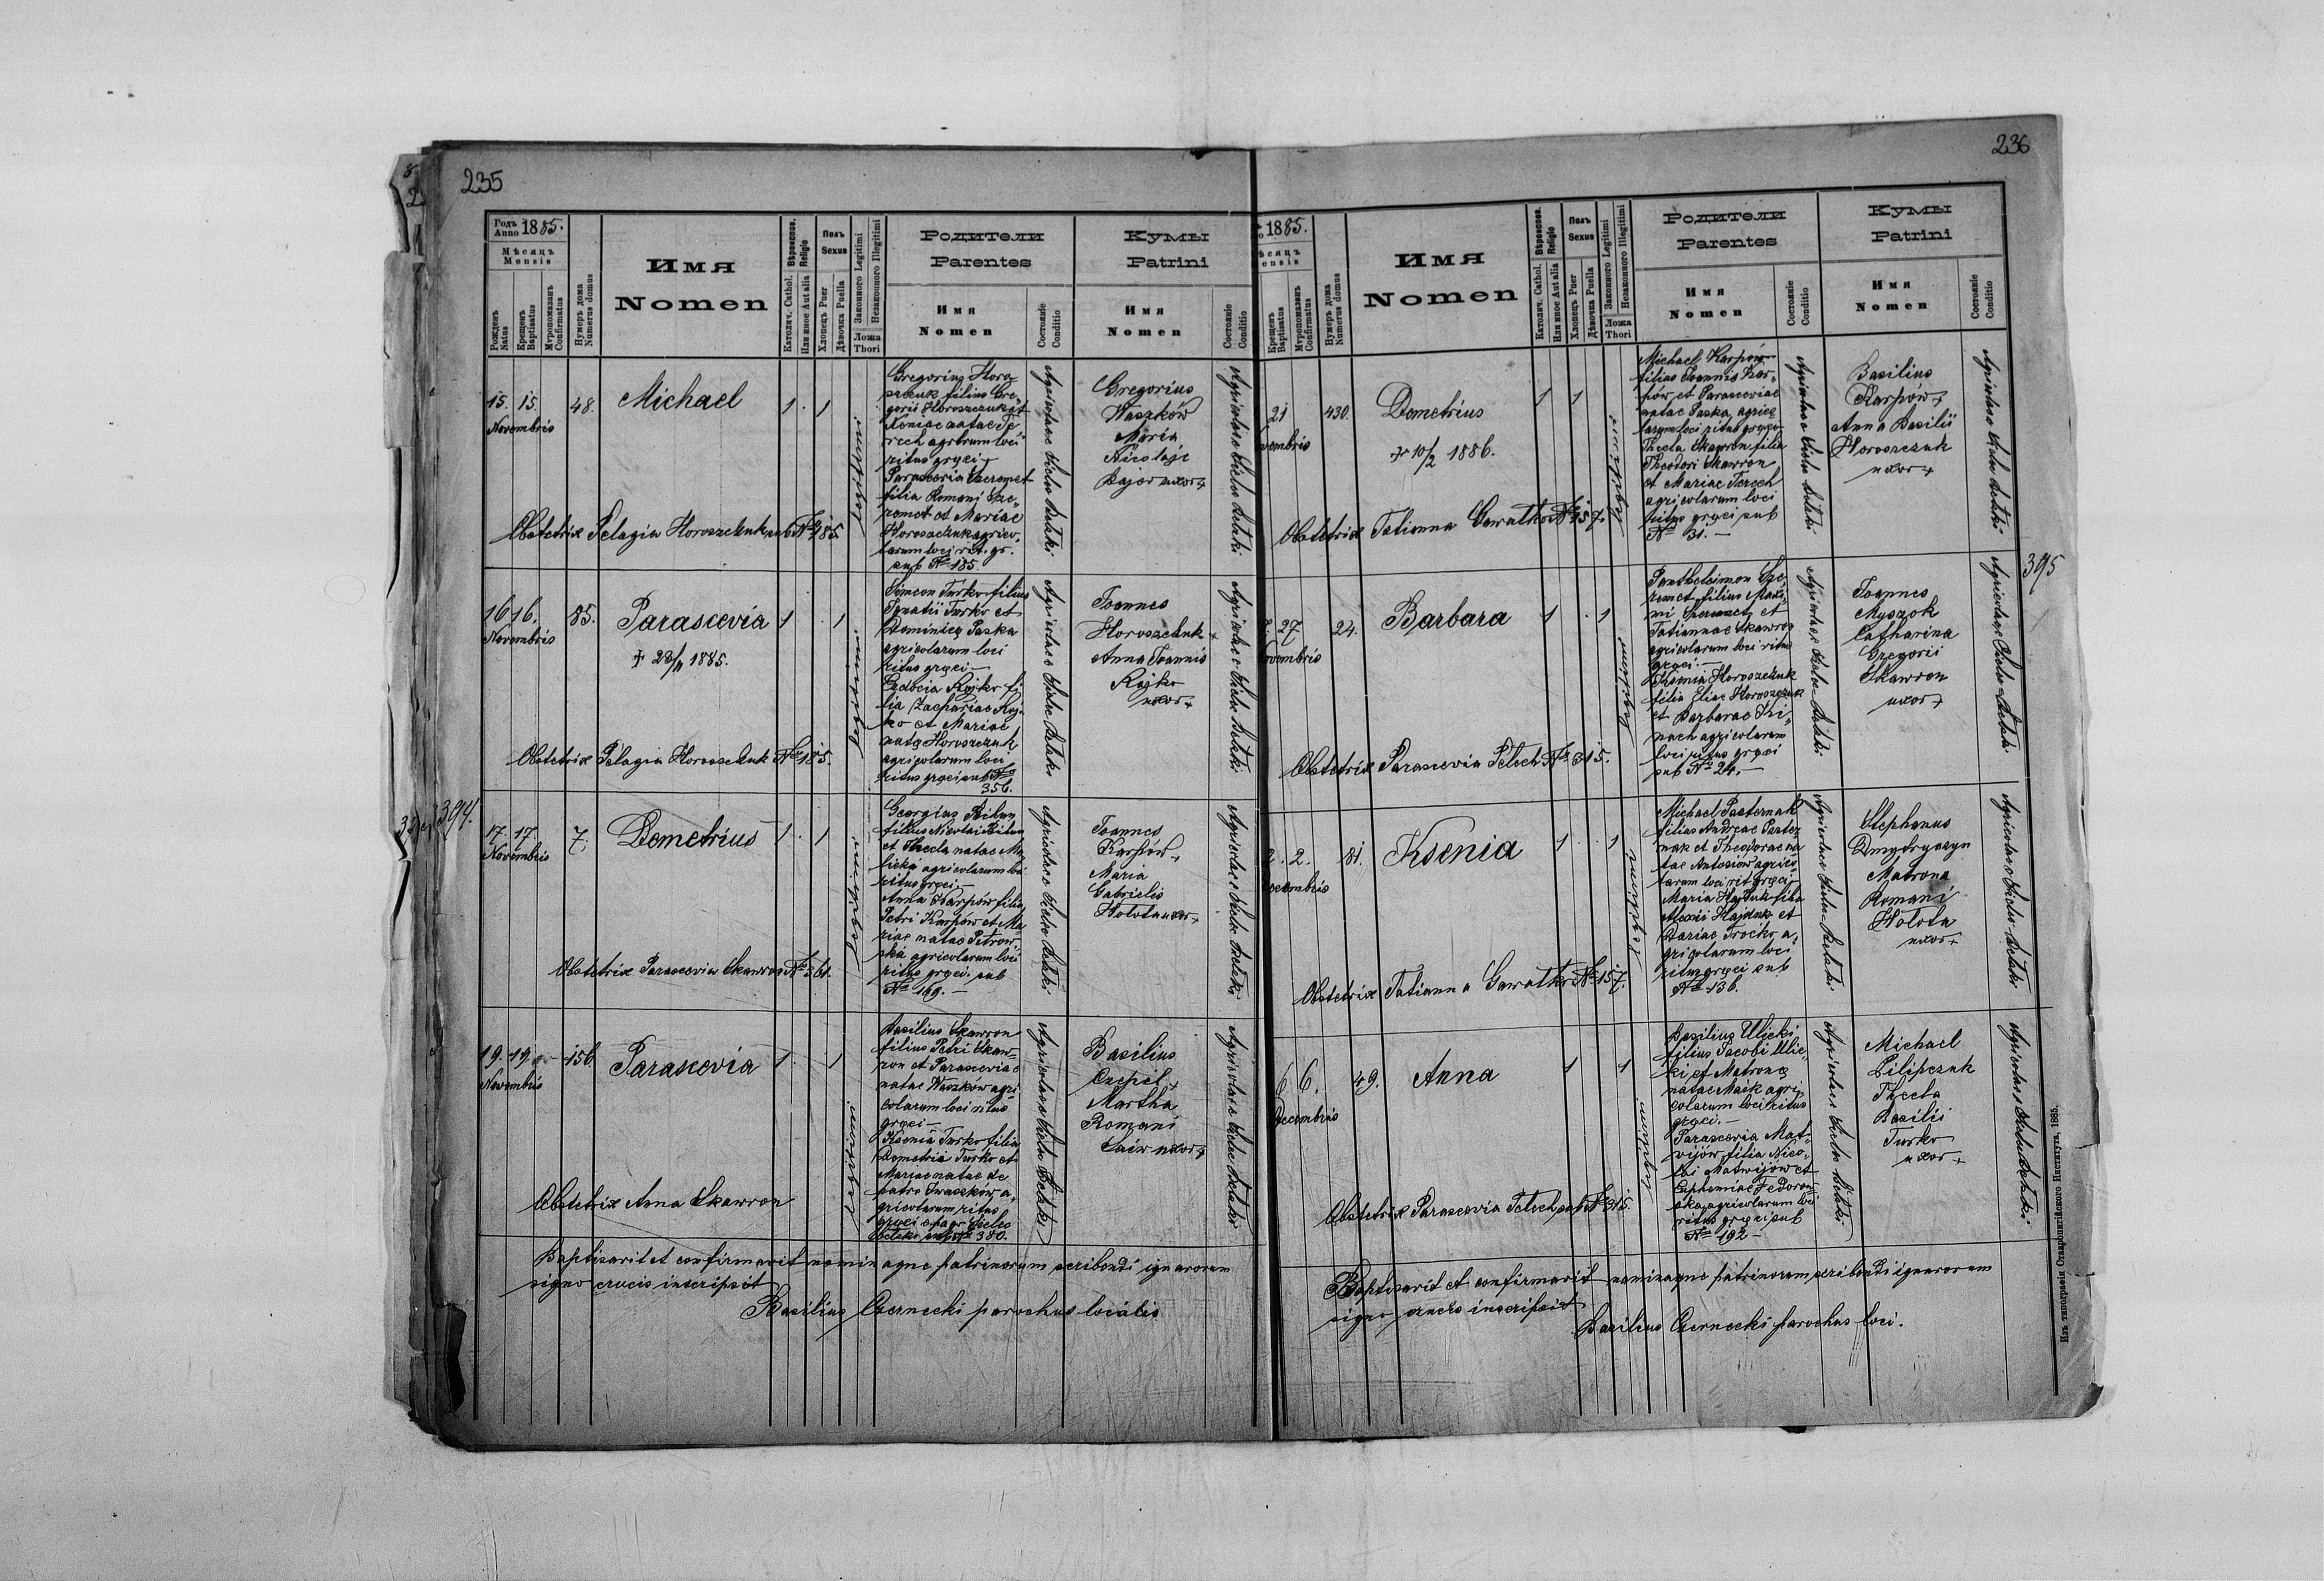 235
Годъ Anno 1885.
Мѣсяцъ Mensis
Рожденъ Natus
Крещенъ Baptisatus
Мѵропомазанъ Confirmatus
Нумеръ дома Numerus domus
Имя
Nomen
Вѣроисповѣд. Religio
Католич. Cathol.
Или иное Aut alia
Полъ Sexus
Хлопецъ Puer
Дѣвочка Puella
Законного Legitimi
Незаконного Illegitimi
Ложа Thori
Родители
Parentes
Имя
Nomen
Состояніе Conditio
Кумы
Patrini
Имя
Nomen
Состояніе Conditio
15. 15. 48. Michael 1 . 1
Novembris
legitimi
Gregorius Horo-
szczuk filius Gre-
gorii Horoszczuk et
Xeniae natae Te-
rech agrlrum loci
ritus gręci +
Parascevia Szeremet
filia Romani Sze-
remet et Mariae
Horoszczuk agrico-
larum loci rit. gr.
sub No 185.
Agricolae
Gregorius
Waszków
Maria
Nicolaji
Bajor uxor +
Agricolae
Obstetrix Pelagia Horoszczuk sub No 185.
16 16. 85. Parascevia 1 . 1
Novembris
+ 28/11 1885.
legitimi
Simeon Turko filius
Ignatii Turko et
Dominicę Paska
agricolarum loci
ritus gręci —
Eudocia Rojko fi-
lia Zachariae Roj-
ko et Mariae
natę Horoszczuk
agricolarum loci
ritus gręci sub No
356.
Agricolae
Joannes
Horoszczuk +
Anna Joannis
Rojko
uxor +
Agricolae
Obstetrix Pelagia Horoszczuk No 185.
394.
17. 17. 7. Demetrius 1 . 1
Novembris
legitimi
Georgius Bilun
filius Nicolai Bilun
et Thecla natae Ma-
licka agricolarum loci
ritus gręci —
Anna Karpów filia
Petri Karpów et Ma-
riae natae Petrow-
ska agricolarum loci
ritus gręci sub
No 169. —
Agricolae
Joannes
Karpów +
Maria
Gabrielis
Holota uxor +
Agricolae
Obstetrix Parascevia Skawron No 361.
19. 19. 156. Parascevia 1 . 1
Novembris
legitimi
Basilius Skawron
filius Petri Skaw-
ron et Parasceviae
natae Waszków agri-
colarum loci ritus
gręci —
Ksenia Turko filia
Demetrii Turko et
Mariae natae de
patre Iwaszków a-
gricolarum ritus
gręci
sub No 380.
Agricolae
Basilius
Czepil +
Martha
Romani
uxor +
Agricolae
Obstetrix Anna Skawron
Baptisavit et confirmavit nominaque patrinorum scribendi ignarorum
signo crucis inscripsit
Basilius Czernecki parochus localis
236
1885.
Крещенъ Baptisatus
Мѵропомазанъ Confirmatus
Нумеръ дома Numerus domus
Имя
Nomen
Вѣроисповѣд. Religio
Католич. Cathol.
Или иное Aut alia
Полъ Sexus
Хлопецъ Puer
Дѣвочка Puella
Законного Legitimi
Незаконного Illegitimi
Ложа Thori
Родители
Parentes
Имя
Nomen
Состояніе Conditio
Кумы
Patrini
Имя
Nomen
Состояніе Conditio
21 430. Demetrius 1 1
vembris
+ 10/2 1886.
legitimi
Michael Karpów
filius Joannis Kar-
pów et Parasceviae
natae Paska agrico-
larum loci ritus gręci
Thecla Skawron filia
Theodori Skawron
et Mariae Terech
agricolarum loci
ritus gręci sub
No 31. —
Agricolae
Basilius
Karpów +
Anna Basilii
Horoszczuk
uxor +
Agricolae
Obstetrix Tatianna Gawatko No 157.
395
27 24. Barbara 1 . 1
ovembris
legitimi
Pantheleimon Sze-
remet filius Maxi-
mi Szeremet et
Tatiannae Skawron
agricolarum loci ritus
gręci. —
Ksenia Horoszczuk
filia Eliae Horoszczuk
et Barbarae Kri-
nach agricolarum
loci ritus gręci
sub No 24. —
Agricolae
Joannes
Myszok
Catharina
Gregorii
Skawron
uxor +
Agricolae
Obstetrix Parascevia Petech No 315.
2. 2. 81. Ksenia 1 . 1
ecembris
legitimi
Michael Pasternak
filius Andreae Paster-
nak et Theodorae na-
tae Antosiów agrico-
larum loci rit gręci
Maria Hajduk filia
Alexii Hajduk et
Dariae Trocko a-
gricolarum loci
ritus gręci sub
No 136.
Agricolae
Stephanus
Dmytryszyn
Matrona
Romani
Holota
uxor +
Agricolae
Obstetrix Tatianna Gawatko No 157.
6 6. 49. Anna 1 1
Decembris
legitimi
Basilius Ulicki
filius Jacobi Ulic-
ki et Matronę
natae Maik agri-
colarum loci ritus
gręci. —
Parascevia Mat-
wijów filia Nico-
lai Matwijów et
Euphemiae Fedorow-
ska agricolarum loci
ritus gręci sub
No 192 —
Agricolae
Michael
Pilipczuk
Thecla
Basilii
Turko
uxor +
Agricolae
Obstetrix Parascevia Petech sub No 315.
Baptisavit et confirmavit nominaque patrinorum scribendi ignarorum
signo crucis inscripsit
Basilius Czernecki parochus loci.
Изъ типографіи Ставропигійского Института, 1885.